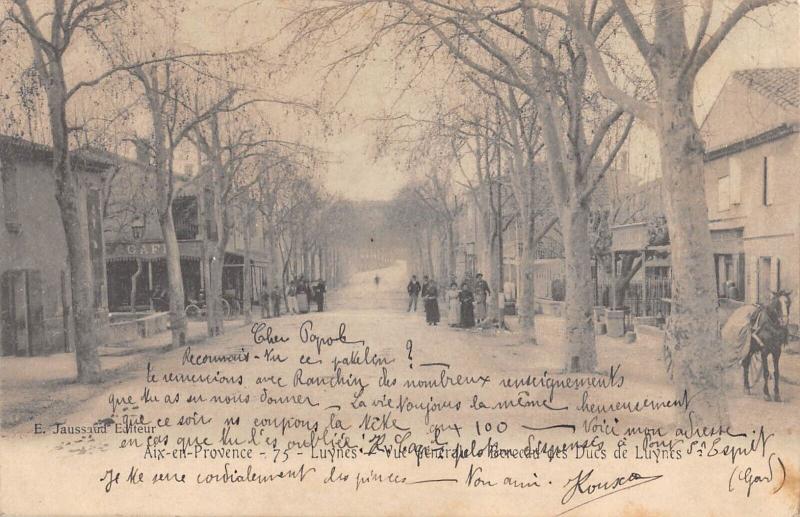 CAFÉ
Cher Popol
Reconnais-tu ce patelin ?
te remercions avec Ranchin des nombreux renseignements
que tu as su nous donner — La vie toujours la même — heureusement
que ce soir ns coupons la tête au 100 — Voici mon adresse
E. Jaussaud Editeur
en cas que tu l'ais oubliée : peloton dispensés à Pont St Esprit
Aix-en-Provence - 75 - Luynes - Vue générale - Berceau des Ducs de Luynes
(Gard)
Je te serre cordialement des pinces — Ton ami.